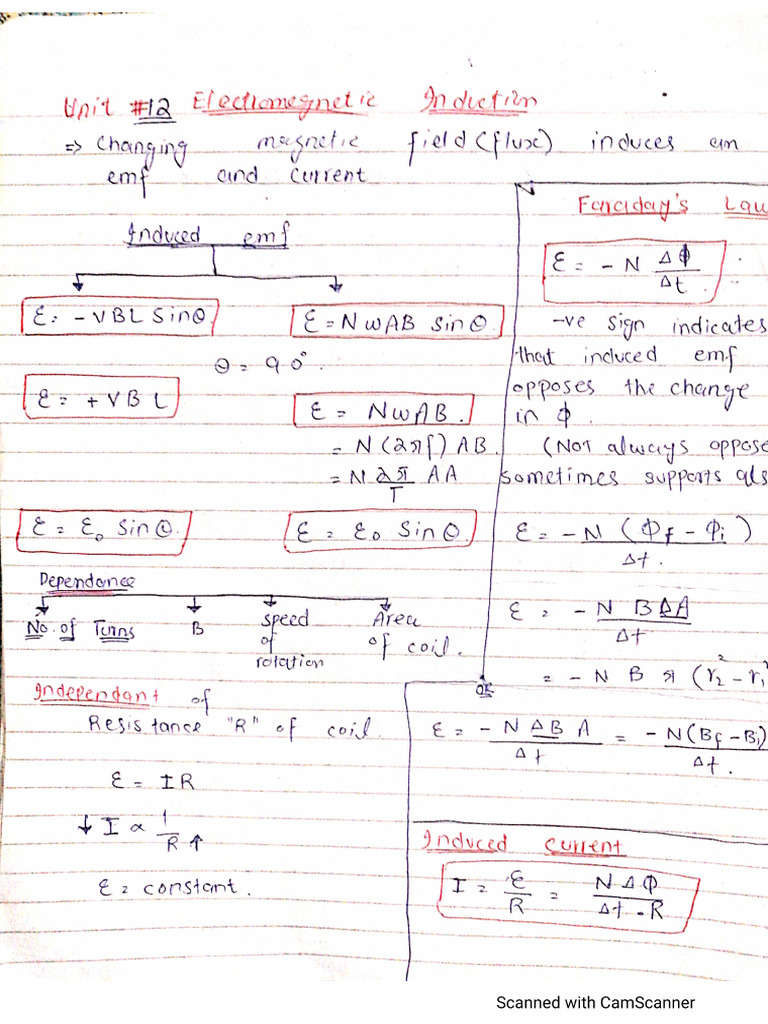 Unit #12 Electromegnetic Induction
=> Changing magnetic field (flux) induces am
emf and current
Induced emf
ε = - VBL Sinθ
ε = NωAB sinθ
θ = 90°.
ε = + VBL
ε = NωAB.
= N(2πf) AB.
= N 2π/T AA
ε = ε₀ Sinθ.
ε = ε₀ Sinθ
Dependance
No. of Turns
B
speed of rotation
Area of coil.
Independant of
Resistance "R" of coil.
ε = IR
↓ I ∝ 1/R ↑
ε = constant.
Faraday's Law
ε = - N Δϕ/Δt.
-ve sign indicates
that induced emf
opposes the change
in ϕ.
(Not always oppose
sometimes supports als
ε = -N (ϕf - ϕi)/Δt.
ε = - N B ΔA/Δt
= - N B π (r₂² - r₁²
OR
ε = -N ΔB A/Δt = -N(Bf - Bi)/Δt.
Induced current
I = ε/R = NΔϕ/Δt - R
Scanned with CamScanner